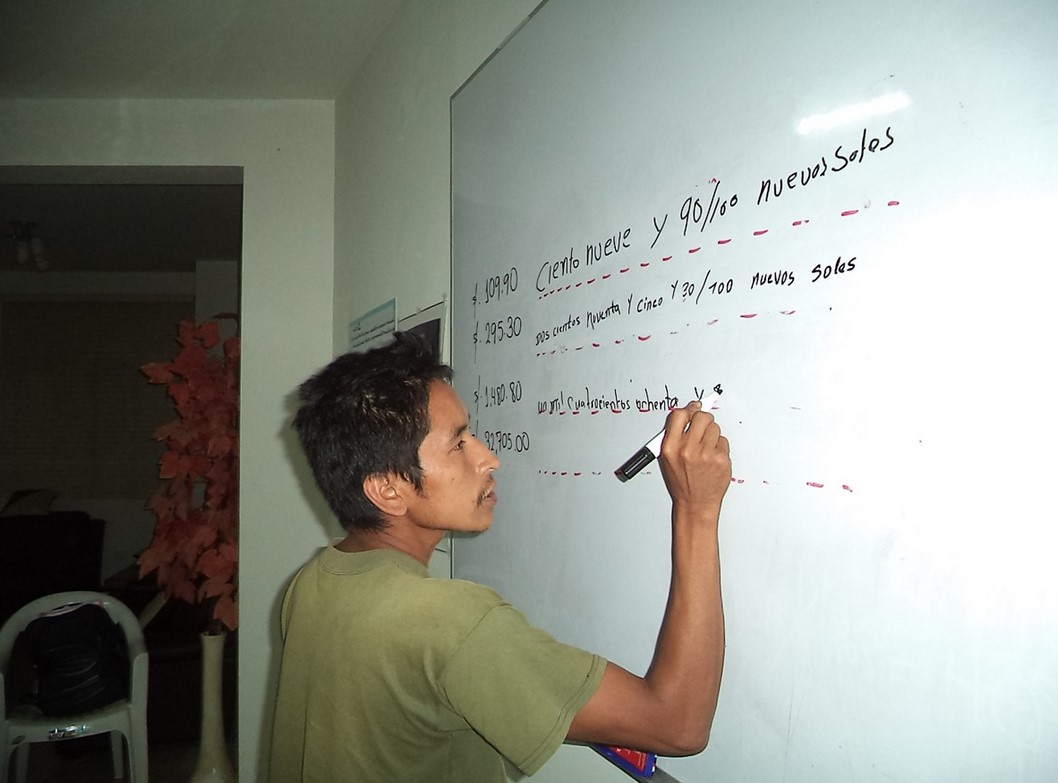 s/. 109.90 Ciento nueve y 90/100 nuevos soles
s/. 295.30 Dos cientos noventa y cinco y 30/100 nuevos soles
s/. 1,480.80 un mil cuatrocientos ochenta y 8
32,705.00